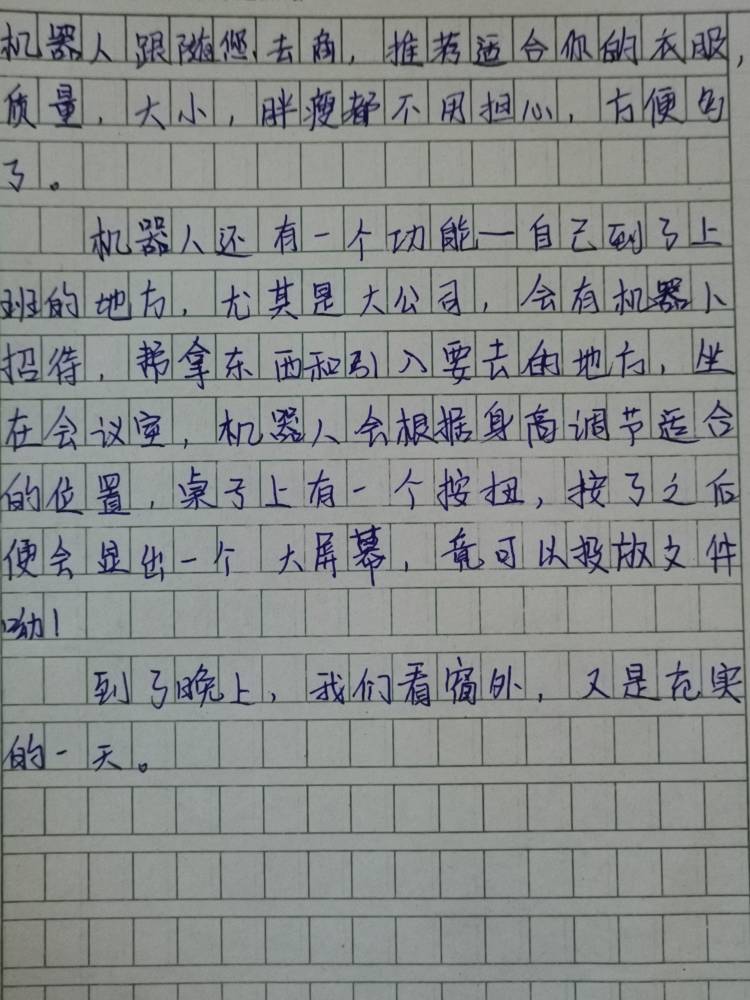 机器人跟随您去商，推荐适合你的衣服，
质量，大小，胖瘦都不用担心，方便的
了。
机器人还有一个功能—自己到了上
班的地方，尤其是大公司，会有机器人
招待，帮拿东西和引入要去的地方，坐
在会议室，机器人会根据身高调节适合
的位置，桌子上有一个按扭，按了之后
便会显出一个大屏幕，竟可以投放文件
呦！
到了晚上，我们看窗外，又是充实
的一天。